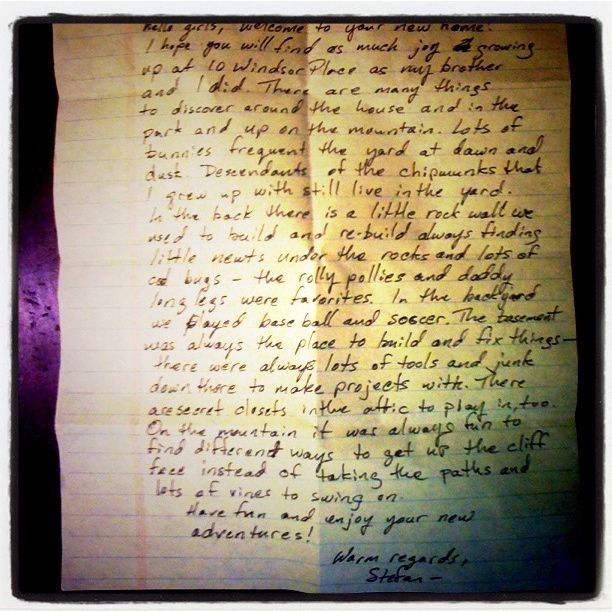 Hello girls, welcome to your new home.
I hope you will find as much joy growing
up at 10 Windsor Place as my brother
and I did. There are many things
to discover around the house and in the
park and up on the mountain. Lots of
bunnies frequent the yard at dawn and
dusk. Descendants of the chipmunks that
I grew up with still live in the yard.
In the back there is a little rock wall we
used to build and re-build always finding
little newts under the rocks and lots of
cool bugs - the rolly pollies and daddy
long legs were favorites. In the backyard
we played baseball and soccer. The basement
was always the place to build and fix things -
there were always lots of tools and junk
down there to make projects with. There
are secret closets in the attic to play in, too.
On the mountain it was always fun to
find different ways to get up the cliff
face instead of taking the paths and
lots of vines to swing on.
Have fun and enjoy your new
adventures!
Warm regards,
Stefan -